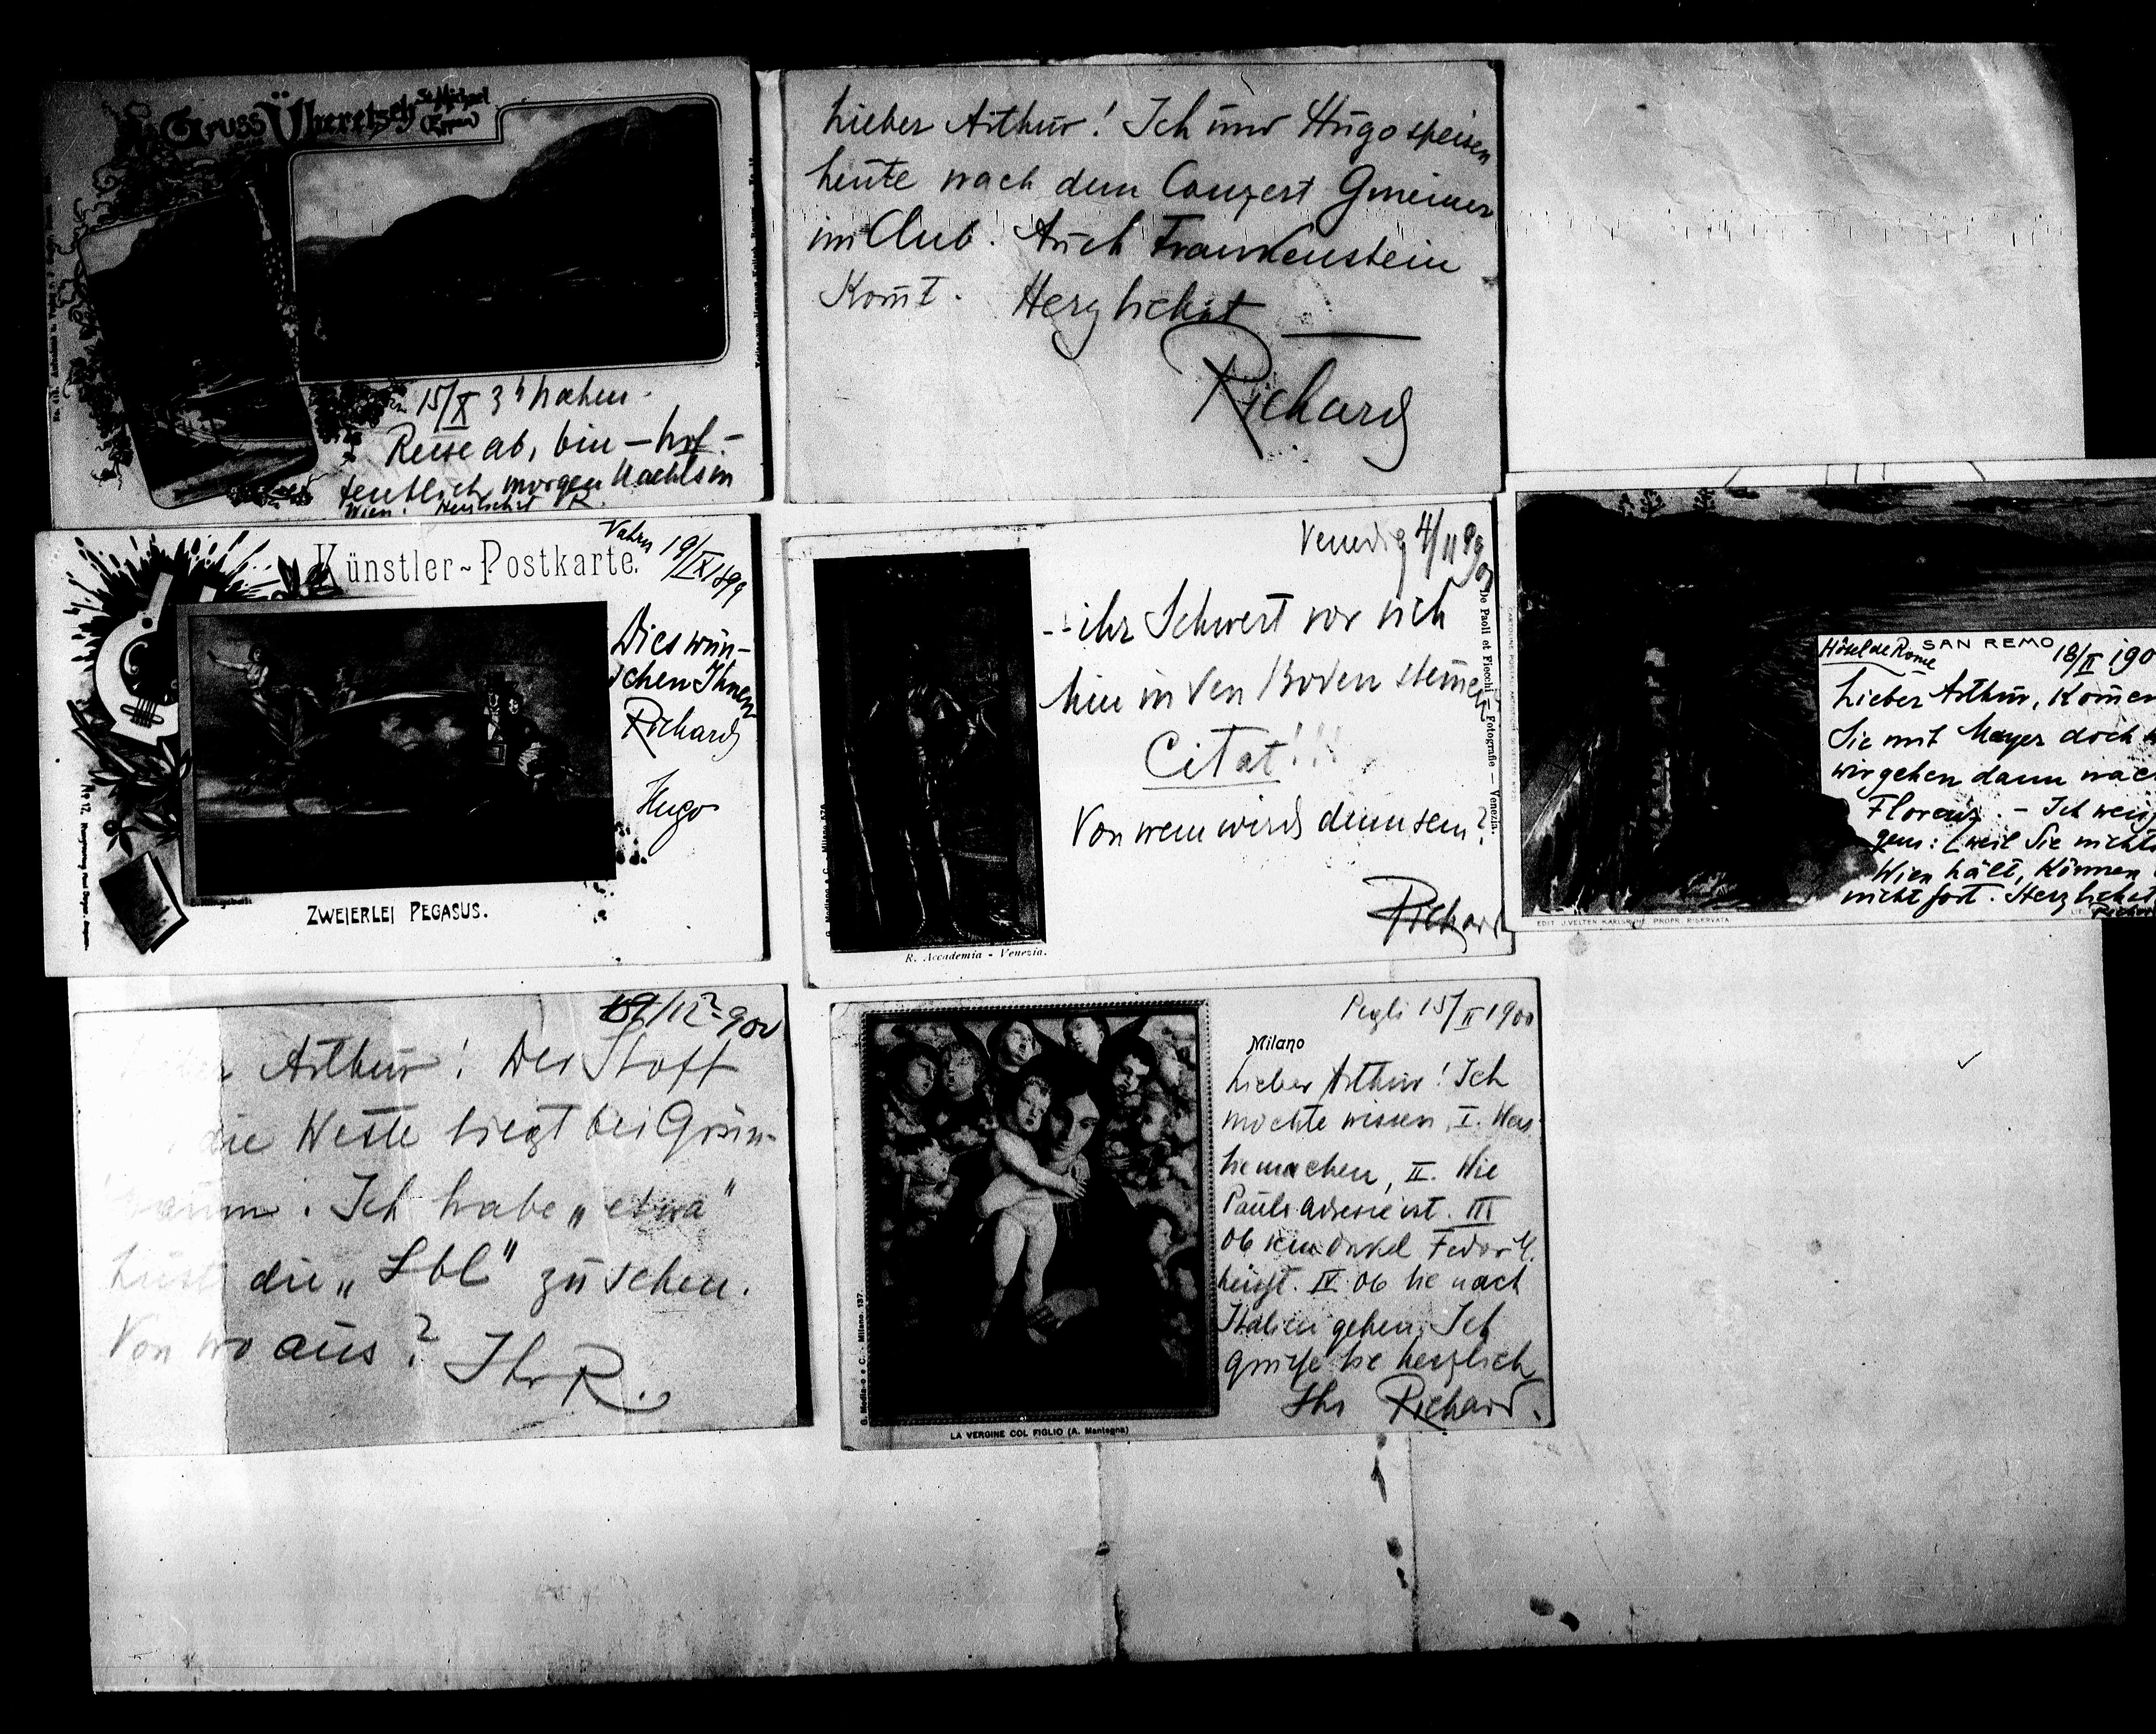 Gruss Überetsch St. Michael
(Eppan)
15/X 3h Nachm.
Reise ab, bin – hof-
fentlich morgen Nachts in
Wien. Herzlichst R.
Lieber Arthur! Ich und Hugo speisen
heute nach dem Conzert Gmeiner
im Club. Auch Frankenstein
Kom̄t. Herzlichst
Richard
Künstler-Postkarte.
Vahrn 19/IX 1899
Dies wün-
schen Ihnen
Richard
Hugo
No 12.
ZWEIERLEI PEGASUS.
Venedig 4/11 99
-- ihr Schwert vor sich
hin in den Boden
Citat!!!
Von wem wirds denn sein?
Richard
De Paoli et Fiecchi – Fotografie – Venezia.
R. Accademia - Venezia.
SAN REMO
Hôtel de Rome 18/II 190
Lieber Arthur, Kom̄en
Sie mit Mayer doch
wir gehen dann nac
Florenz. – Ich
weil Sie nichts
Wien hält, Können
nicht fort. Herzlichst
EDIT J. VELTEN KARLSRUHE. PROPR. RISERVATA
/12 900
Arthur! Der Stoff
die Weste liegt bei Grün-
baum. Ich habe „etwa“
Lust die „Lbl“ zu sehen.
Von wo aus? Ihr R.
Pegli 15/II 1900
Milano
Lieber Arthur! Ich
möchte wissen, I. Was
Sie machen, II. Wie
Pauls Adresse ist. III
Ob sein Onkel Fedor M.
heißt. IV. Ob Sie nach
Italien gehen. Ich
grüße Sie herzlich
Ihr Richard.
G. Modiano e C. - Milano. 137
LA VERGINE COL FIGLIO (A. Mantegna)